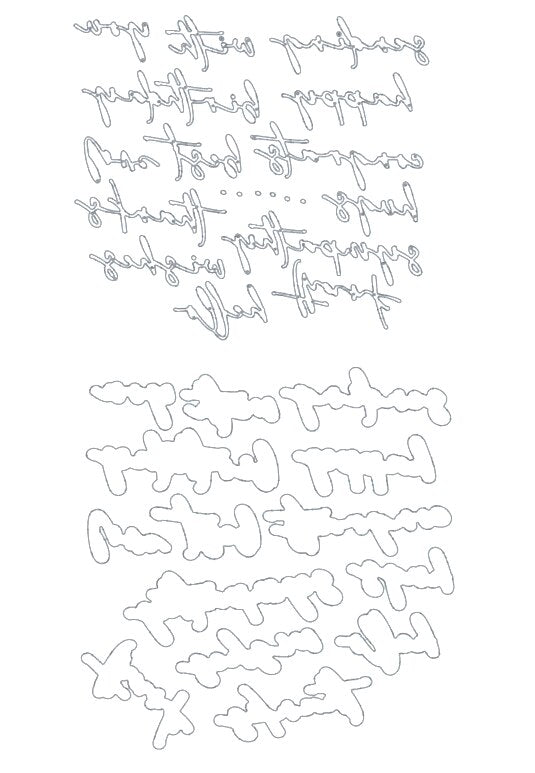 sending with you
happy birthday
congrats best
hugs thanks
sympathy wishes
hello